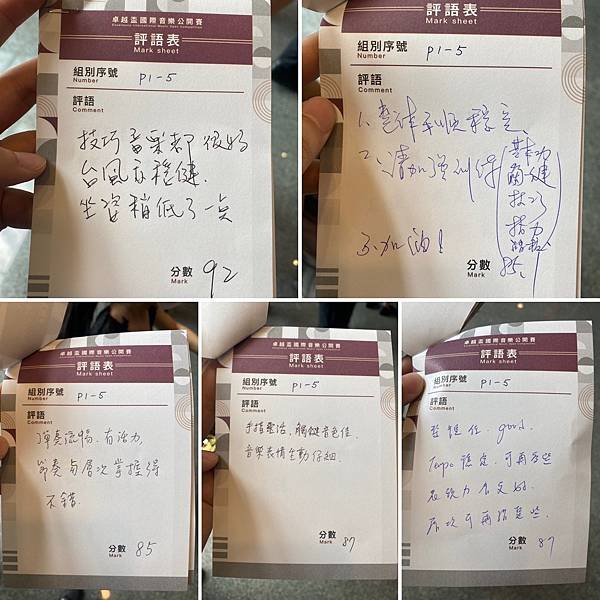 卓越盃國際音樂公開賽
Excellence International Music Open Competition
評語表
Mark sheet
組別序號 P1-5
Number
評語
Comment
技巧音樂都很好
台風亦穩健.
坐姿稍低了一點
分數 92
Mark
評語表
Mark sheet
組別序號 P1-5
Number
評語
Comment
1. 整体平順穩定、
2、請加強訓練
基本功
觸鍵
技巧
指力
3.加油!
分數 85
Mark
卓越盃國際音樂公開賽
評語表
Mark sheet
組別序號 P1-5
Number
評語
Comment
彈奏流暢、有活力,
節奏與層次掌握得
不錯.
分數 85
Mark
卓越盃國際音樂公開賽
評語表
Mark sheet
組別序號 P1-5
Number
評語
Comment
手指靈活、觸鍵音色佳.
音樂表情生動仔細.
分數 87
Mark
卓越盃國際音樂公開賽
評語表
Mark sheet
組別序號 P1-5
Number
評語
Comment
整體佳. good.
Tempo 穩定. 可再多些
表張力會更好.
層次可再語氣些.
分數 87
Mark